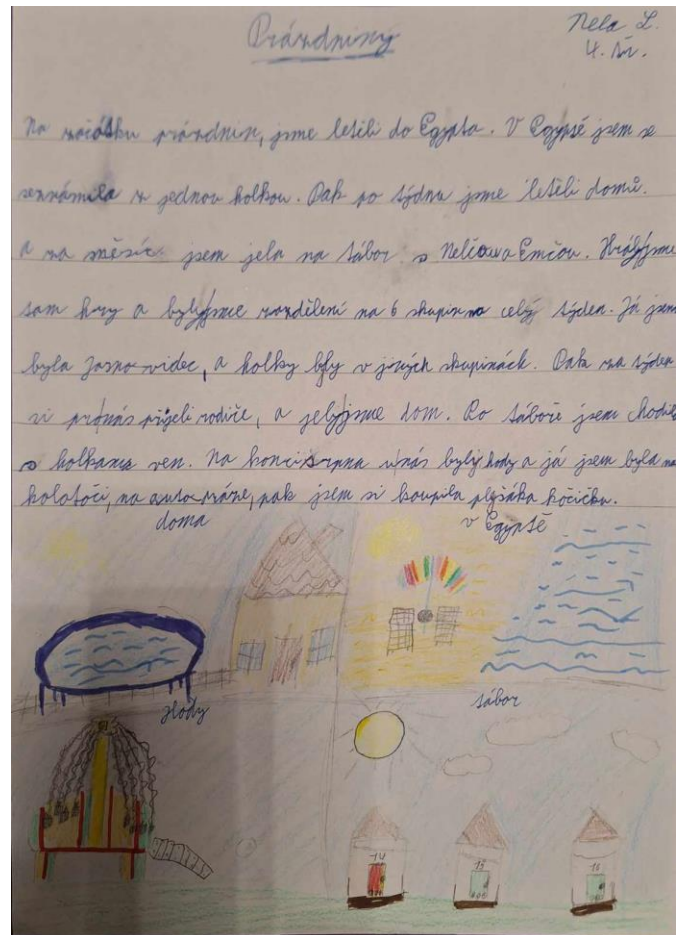 Prázdniny
Nela L.
4. tř.
Na začátku prázdnin, jsme letěli do Egypta. V Egyptě jsem se
seznámila z jednou holkou. Pak po týdnu jsme letěli domů.
A za měsíc jsem jela na tábor s Nelčou a Emčou. Hráli jsme
tam hry a byly jsme rozdělení na 6 skupin na celý týden. Já jsem
byla Jasno-videc, a holky byly v jiných skupinách. Pak za týden
si pro nás přijeli rodiče, a jely jsme dom. Po táboře jsem chodila
s holkama ven. Na konci srpna u nás byly hody a já jsem byla na
kolotoči, na auto-dráze, pak jsem si koupila plyšáka kočičku.
doma
v Egyptě
Hody
tábor
14
15
16